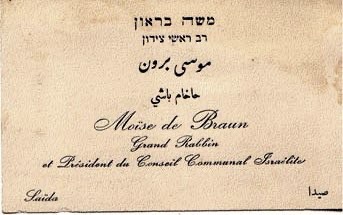 משה בראון
רב ראשי צידון
موسى برون
حاخام باشي
Moïse de Braun
Grand Rabbin
et Président du Conseil Communal Israélite
Saïda صيدا